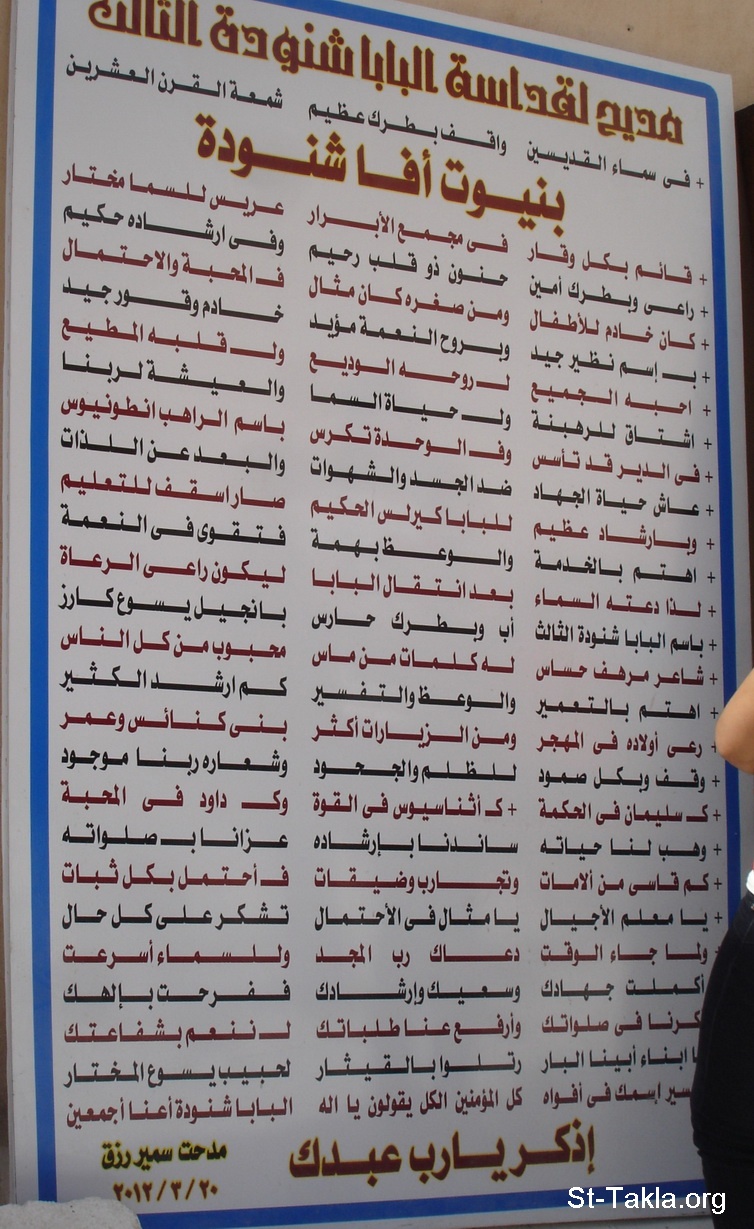 مديح لقداسة البابا شنودة الثالث
+ فى سماء القديسين واقف بطرك عظيم شمعة القرن العشرين
بنيوت أفا شنودة
+ قائم بكل وقار فى مجمع الأبرار عريس للسما مختار
+ راعى وبطرك أمين حنون ذو قلب رحيم وفى ارشاده حكيم
+ كان خادم للأطفال ومن صغره كان مثال فـ المحبة والاحتمال
+ بـ إسم نظير جيد وبروح النعمة مؤيد خادم وقور جيد
+ احبه الجميع لـ روحه الوديع ولـ قلبه المطيع
+ اشتاق للرهبنة ولـ حياة السما والعيشة لربنا
+ فى الدير قد تأسس وفـ الوحدة تكرس باسم الراهب انطونيوس
+ عاش حياة الجهاد ضد الجسد والشهوات والبعد عن اللذات
+ وبارشاد عظيم للبابا كيرلس الحكيم صار اسقف للتعليم
+ اهتم بالخدمة والوعظ بهمة فتقوى فى النعمة
+ لذا دعته السماء بعد انتقال البابا ليكون راعى الرعاة
+ باسم البابا شنودة الثالث أب وبطرك حارس بانجيل يسوع كارز
+ شاعر مرهف حساس له كلمات من ماس محبوب من كل الناس
+ اهتم بالتعمير والوعظ والتفسير كم ارشد الكثير
+ رعى أولاده فى المهجر ومن الزيارات أكثر بنى كنائس وعمر
+ وقف وبكل صمود للظلم والجحود وشعاره ربنا موجود
+ كـ سليمان فى الحكمة + كـ أثناسيوس فى القوة وكـ داود فى المحبة
+ وهب لنا حياته ساندنا بإرشاده عزانا بـ صلواته
+ كم قاسى من ألامات وتجارب وضيقات فـ أحتمل بكل ثبات
+ يا معلم الأجيال يا مثال فى الأحتمال تشكر على كل حال
+ ولما جاء الوقت دعاك رب المجد وللسماء أسرعت
أكملت جهادك وسعيك وإرشادك ففرحت بإلهك
فى صلواتك وأرفع عنا طلباتك لـ ننعم بشفاعتك
ابناء أبينا البار رتلوا بالقيثار لحبيب يسوع المختار
إسمك فى أفواه كل المؤمنين الكل يقولون يا اله البابا شنودة أعنا أجمعين
إذكر يارب عبدك
مدحت سمير رزق
٢٠ / ٣ / ٢٠١٢
St-Takla.org